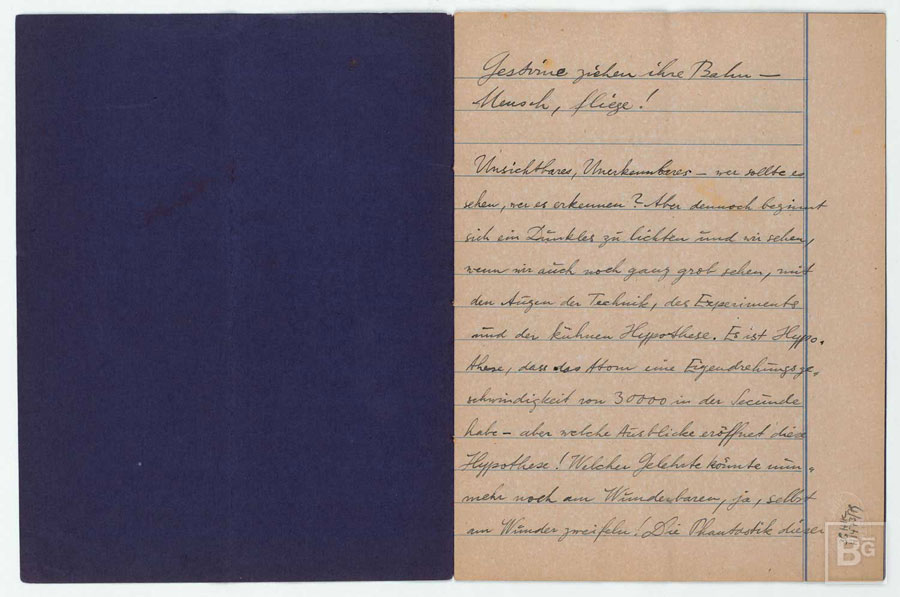 Gestirne ziehen ihre Bahn –
Mensch, fliege!
Unsichtbares, Unerkennbares – wer sollte es
sehen, wer es erkennen? Aber dennoch beginnt
sich ein Dunkles zu lichten und wir sehen,
wenn wir auch noch ganz grob sehen, mit
den Augen der Technik, des Experiments
und der kühnen Hypothese. Es ist Hypo-
these, dass das Atom eine Eigendrehungsge-
schwindigkeit von 30000 in der Secunde
habe – aber welche Ausblicke eröffnet diese
Hypothese! Welcher Gelehrte könnte nun-
mehr noch am Wunderbaren, ja, selbst
am Wunder zweifeln! Die Phantastik dieser
BG